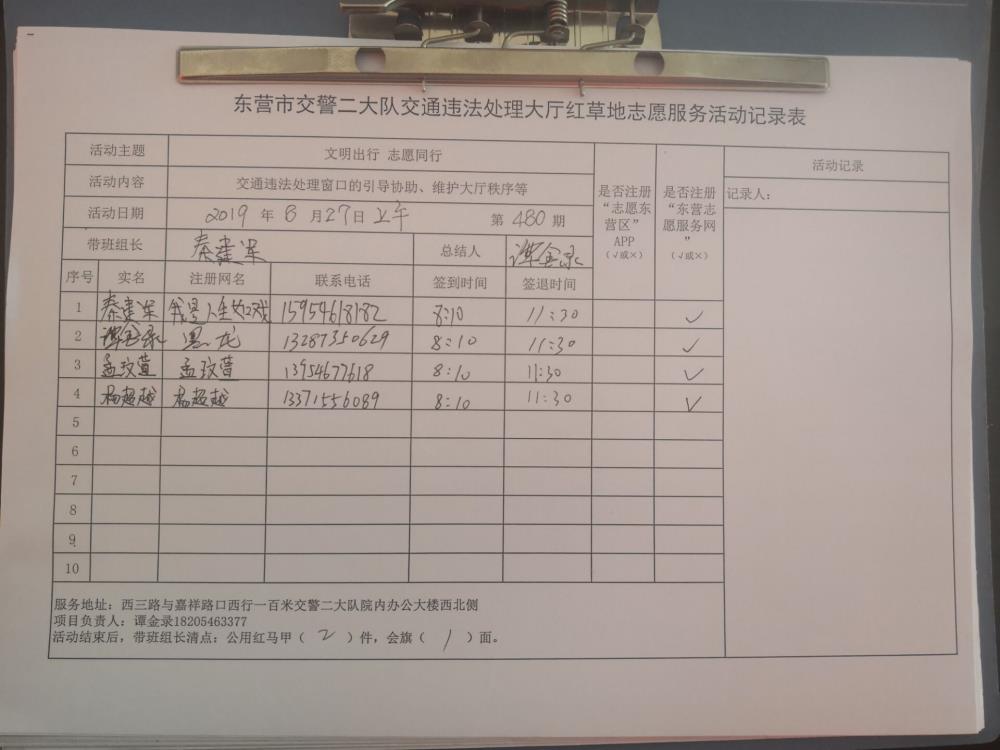 东营市交警二大队交通违法处理大厅红草地志愿服务活动记录表
活动主题 文明出行 志愿同行
活动内容 交通违法处理窗口的引导协助、维护大厅秩序等
活动日期 2019 年 8 月 27 日 上午 第 480 期
带班组长 秦建 总结人 谭金录
是否注册“志愿东营区”APP（√或×）
是否注册“东营志愿服务网”（√或×）
活动记录
记录人：
序号 实名 注册网名 联系电话 签到时间 签退时间
1 秦建 我是人生如戏 15954618182 8:10 11:30 ✓
2 谭金录 黑龙 13287350629 8:10 11:30 ✓
3 孟玟萱 孟玟萱 13954677618 8:10 11:30 ✓
4 杨超越 杨超越 13371556089 8:10 11:30 ✓
5
6
7
8
9
10
服务地址：西三路与嘉祥路口西行一百米交警二大队院内办公大楼西北侧
项目负责人：谭金录18205463377
活动结束后，带班组长清点：公用红马甲（ 2 ）件，会旗（ 1 ）面。